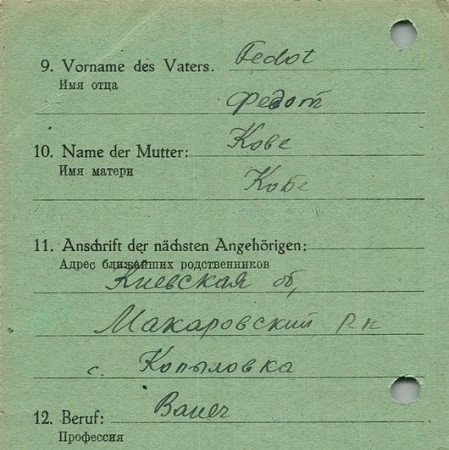 9. Vorname des Vaters. Fedot
Имя отца
Федот
10. Name der Mutter: Кове
Имя матери
Кове
11. Anschrift der nächsten Angehörigen:
Адрес ближайших родственников
Киевская об,
Макаровский р-н
с. Копыловка
12. Beruf: Bauer
Профессия